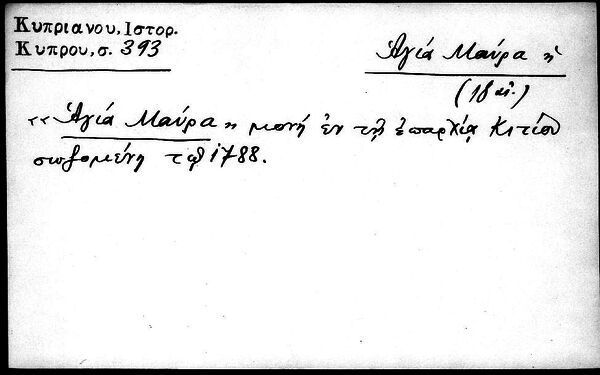 Κυπριανου, Ιστορ.
Κυπρου, σ. 393
Ἁγία Μαύρα ἡ
(18 αἰ.)
«Ἁγία Μαύρα» μονή ἐν τῇ ἐπαρχίᾳ Κιτίου
σωζομένη τῷ 1788.